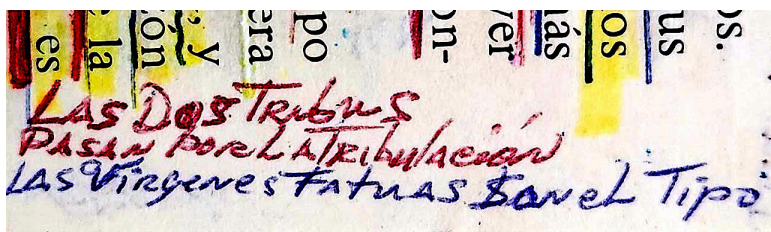 es
la
ón
, y
era
po
on-
ver
más
os
us
os.
LAS DOS TRIBUS
PASAN POR LA TRIBULACIÓN
LAS VÍRGENES FATUAS SON EL TIPO